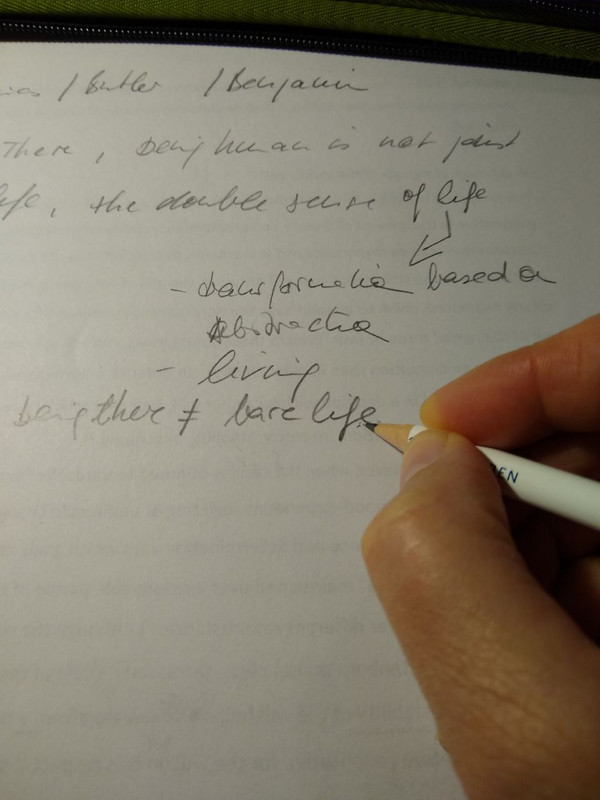 / Butler / Benjamin
There, being human is not just
life, the double sense of life
- transformation based on
abstraction
- living
being there ≠ bare life
EN